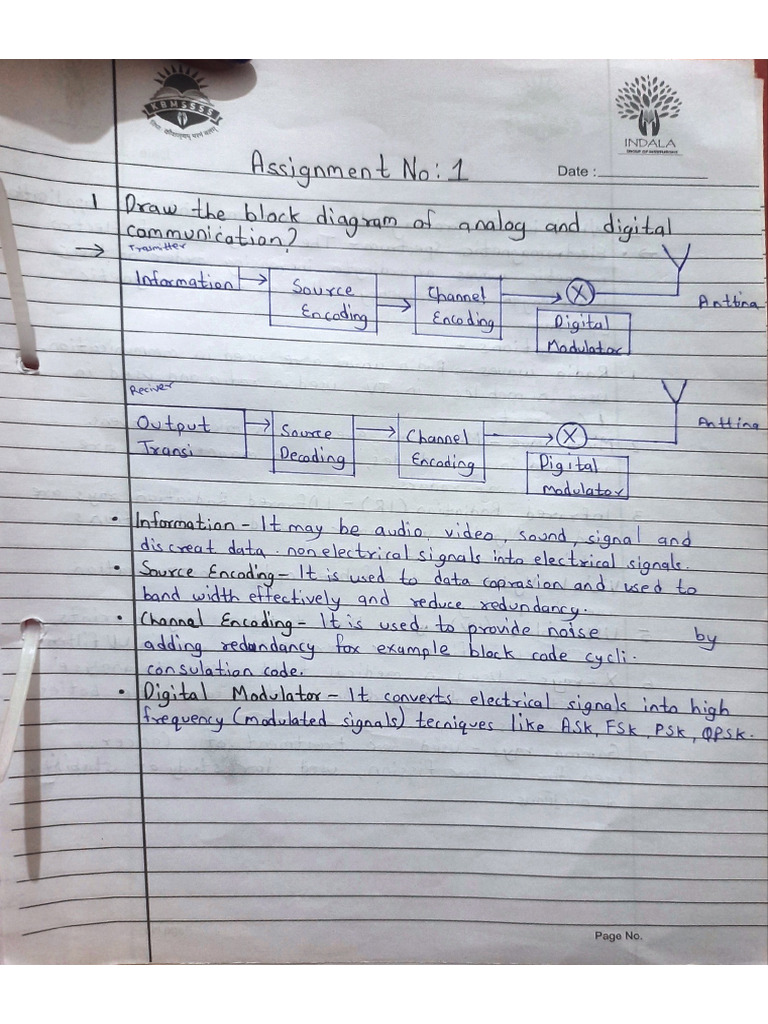 KBMSSSS
INDALA
Assignment No: 1
Date :
1 Draw the block diagram of analog and digital
communication?
Trasmitter
→ Information
Source
Encoding
Channel
Encoding
X
Digital
Modulator
Anttina
Reciver
Output
Transi
Source
Decoding
Channel
Encoding
X
Digital
modulator
Anttina
• Information - It may be audio, video, sound, signal and
discreat data. non electrical signals into electrical signals.
• Source Encoding - It is used to data coprasion and used to
band width effectively and reduce redundancy.
• Channel Encoding - It is used to provide noise - by
adding redundancy fox example block code cycli.
consulation code.
• Digital Modulator - It converts electrical signals into high
frequency (modulated signals) tecniques like ASK, FSK, PSK, QPSK.
Page No.